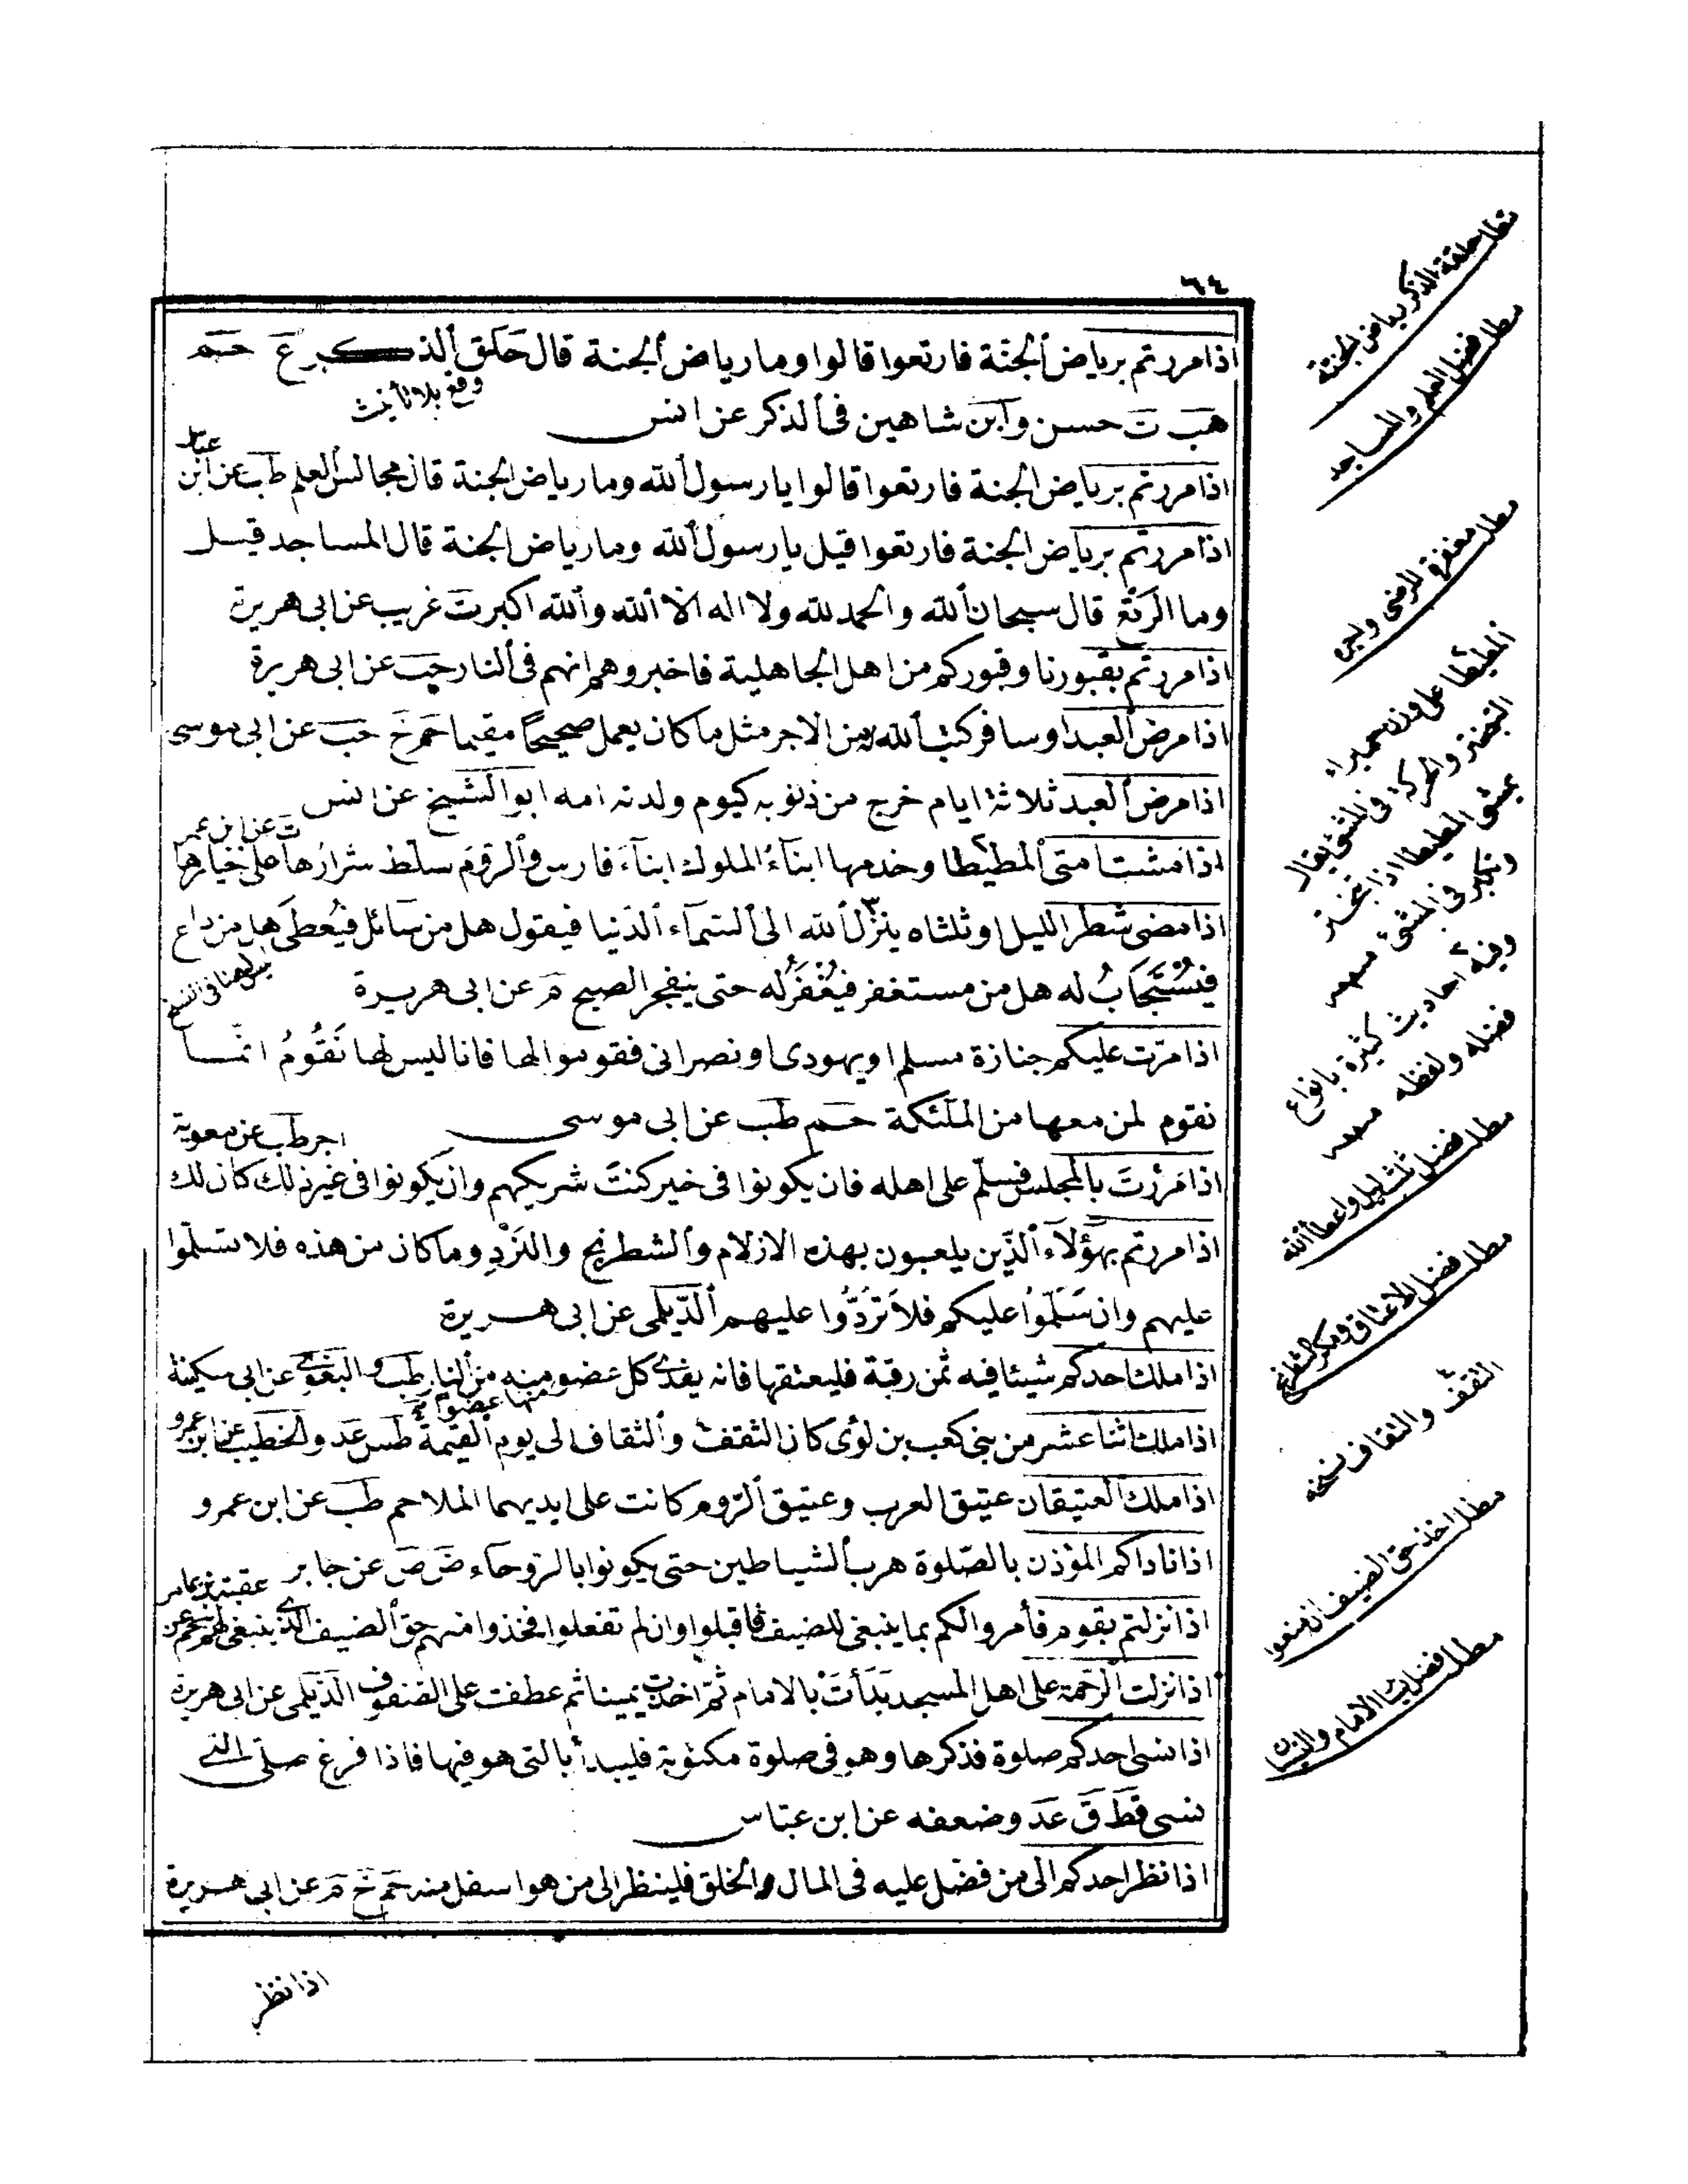 ٦٤
اذا مررتم برياض الجنة فارتعوا قالوا وما رياض الجنة قال حلق الذكر ع حم
وقع بلا تأنيث
هب ت حسن وابن شاهين فى الذكر عن انس
اذا مررتم برياض الجنة فارتعوا قالوا يا رسول الله وما رياض الجنة قال مجالس العلم طب عن ابن عباس
اذا مررتم برياض الجنة فارتعوا قيل يا رسول الله وما رياض الجنة قال المساجد قيل
وما الرتع قال سبحان الله والحمد لله ولا اله الا الله والله اكبر ت غريب عن ابى هريرة
اذا مررتم بقبورنا وقبوركم من اهل الجاهلية فاخبروهم انهم فى النار حب عن ابى هريرة
اذا مرض العبد او سافر كتب الله له من الاجر مثل ما كان يعمل صحيحا مقيما حم خ حب عن ابى موسى
اذا مرض العبد ثلاثة ايام خرج من ذنوبه كيوم ولدته امه ابو الشيخ عن انس
اذا مشت امتى المطيطا وخدمها ابناء الملوك ابناء فارس والروم سلط شرارها على خيارها ت عن ابن عمر
اذا مضى شطر الليل او ثلثاه ينزل الله الى السماء الدنيا فيقول هل من سائل فيعطى هل من داع
فيستجاب له هل من مستغفر فيغفر له حتى ينفجر الصبح م عن ابى هريرة
اذا مرت عليكم جنازة مسلم او يهودى او نصرانى فقوموا لها فانا ليس لها نقوم انما
نقوم لمن معها من الملئكة حم طب عن ابى موسى
اذا مررت بالمجلس فسلم على اهله فان يكونوا فى خير كنت شريكهم وان يكونوا فى غير ذلك كان لك اجر طب عن معوية
اذا مررتم بهؤلاء الذين يلعبون بهذه الازلام والشطرنج والنرد وما كان من هذه فلا تسلموا
عليهم وان سلموا عليكم فلا تردوا عليهم الديلمى عن ابى هريرة
اذا ملك احدكم شيئا فيه ثمن رقبة فليعتقها فانه يفدى كل عضو منها عضوا منه من النار طب والبغوى عن ابى سكينة
اذا ملك اثنا عشر من بنى كعب بن لؤى كان الثقف والثقاف الى يوم القيمة طس عد والخطيب عن ابن عمرو
اذا ملك العتيقان عتيق العرب وعتيق الروم كانت على ايديهما الملاحم طب عن ابن عمرو
اذا ناداكم المؤذن بالصلوة هرب الشياطين حتى يكونوا بالروحاء ض ص عن جابر
اذا نزلتم بقوم فأمروا لكم بما ينبغى للضيف فاقبلوا وان لم تفعلوا فخذوا منهم حق الضيف الذى ينبغى لهم خ م عن عقبة بن عامر
اذا نزلت الرحمة على اهل المسجد بدأت بالامام ثم اخذت يمينا ثم عطفت على الصفوف الديلمى عن ابى هريرة
اذا نسى احدكم صلوة فذكرها وهو فى صلوة مكتوبة فليبدأ بالتى هو فيها فاذا فرغ صلى التى
نسى قط ق عد وضعفه عن ابن عباس
اذا نظر احدكم الى من فضل عليه فى المال والخلق فلينظر الى من هو اسفل منه حم خ م عن ابى هريرة
اذا نظر
مطلب حلقة الذكر رياض الجنة
مطلب فضل العلم والمساجد
مطلب مغفرة المرضى
المطيطا على وزن حميراء
التبختر والحركة فى المشى يقال
يمشى المطيطا اذا تبختر
وتكبر فى المشى
وفيه احاديث كثيرة بانواع
فضله ولفظه
مطلب فضل ثلث الليل
مطلب فضل الاعتاق
الثقف والثقاف نسخه
مطلب اخذ حق الضيف ان منعوا
مطلب فضل الامام